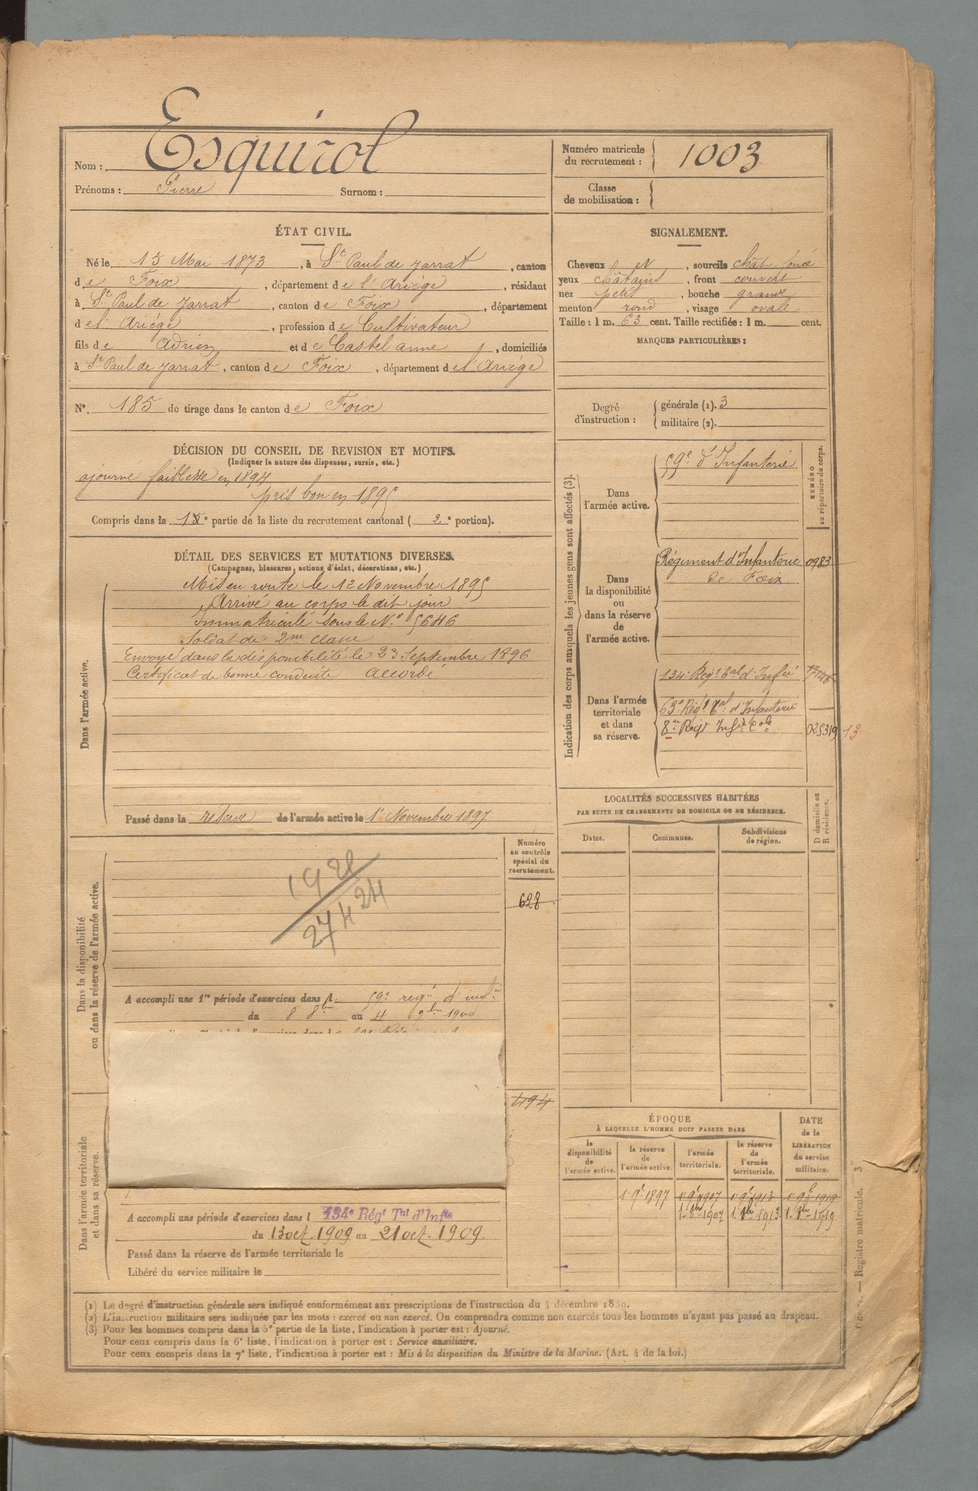 Nom : Esquirol
Prénoms : Pierre Surnom :
Numéro matricule
du recrutement : 1003
Classe
de mobilisation :
ÉTAT CIVIL.
Né le 15 Mai 1873, à St Paul de Jarrat, canton
de Foix, département de l'Ariège, résidant
à St Paul de Jarrat, canton de Foix, département
de l'Ariège, profession de Cultivateur
fils de Adrien et de Castel anne, domiciliés
à St Paul de Jarrat, canton de Foix, département de l'Ariège
N° 185 de tirage dans le canton de Foix
SIGNALEMENT.
Cheveux et sourcils chât. foncé
yeux châtains, front couvert
nez petit, bouche grande
menton rond, visage ovale
Taille : 1 m. 63 cent. Taille rectifiée : 1 m. cent.
MARQUES PARTICULIÈRES :
Degré
d'instruction :
générale (1). 3
militaire (2).
DÉCISION DU CONSEIL DE REVISION ET MOTIFS.
(Indiquer la nature des dispenses, sursis, etc.)
ajourné faiblesse en 1894
pris bon en 1895
Compris dans la 1e partie de la liste du recrutement cantonal ( 2e portion).
DÉTAIL DES SERVICES ET MUTATIONS DIVERSES.
(Campagnes, blessures, actions d'éclat, décorations, etc.)
Dans l'armée active.
Mis en route le 12 Novembre 1895
Arrivé au corps le dit jour
Immatriculé sous le N° 5646
Soldat de 2me classe
Envoyé dans la disponibilité le 23 Septembre 1896
Certificat de bonne conduite Accordé
Passé dans la réserve de l'armée active le 1r Novembre 1897
Indication des corps auxquels les jeunes gens sont affectés (3).
NUMÉRO
au répertoire du corps.
Dans
l'armée active.
59e d'Infanterie
Dans
la disponibilité
ou
dans la réserve
de
l'armée active.
Régiment d'Infanterie 0983
de Foix
Dans l'armée
territoriale
et dans
sa réserve.
134e Régt Tal d'Infie
63e Régt Tal d'Infanterie
8me Regt Infie Cole 025319 13
LOCALITÉS SUCCESSIVES HABITÉES
PAR SUITE DE CHANGEMENTS DE DOMICILE OU DE RÉSIDENCE.
Dates. Communes. Subdivisions
de région.
D domicile ou
R résidence.
Numéro
au contrôle
spécial du
recrutement.
628
Dans la disponibilité
ou dans la réserve de l'armée active.
1928
27 4 24
A accompli une 1re période d'exercices dans l 59e regt d'infie
du 8 8bre au 4 9bre 1900
1194
Dans l'armée territoriale
et dans sa réserve.
A accompli une période d'exercices dans l 134e Régt Tal d'Infie
du 13 oct. 1909 au 21 oct. 1909
Passé dans la réserve de l'armée territoriale le
Libéré du service militaire le
ÉPOQUE
À LAQUELLE L'HOMME DOIT PASSER DANS
la
disponibilité
de
l'armée active.
la réserve
de
l'armée active.
l'armée
territoriale.
la réserve
de
l'armée
territoriale.
DATE
de la
LIBÉRATION
du service
militaire.
(1) Le degré d'instruction générale sera indiqué conformément aux prescriptions de l'instruction du 4 décembre 1889.
(2) L'instruction militaire sera indiquée par les mots : exercé ou non exercé. On comprendra comme non exercés tous les hommes n'ayant pas passé au drapeau.
(3) Pour les hommes compris dans la 5e partie de la liste, l'indication à porter est : Ajourné.
Pour ceux compris dans la 6e liste, l'indication à porter est : Service auxiliaire.
Pour ceux compris dans la 7e liste, l'indication à porter est : Mis à la disposition du Ministre de la Marine. (Art. 4 de la loi.)
Registre matricule.